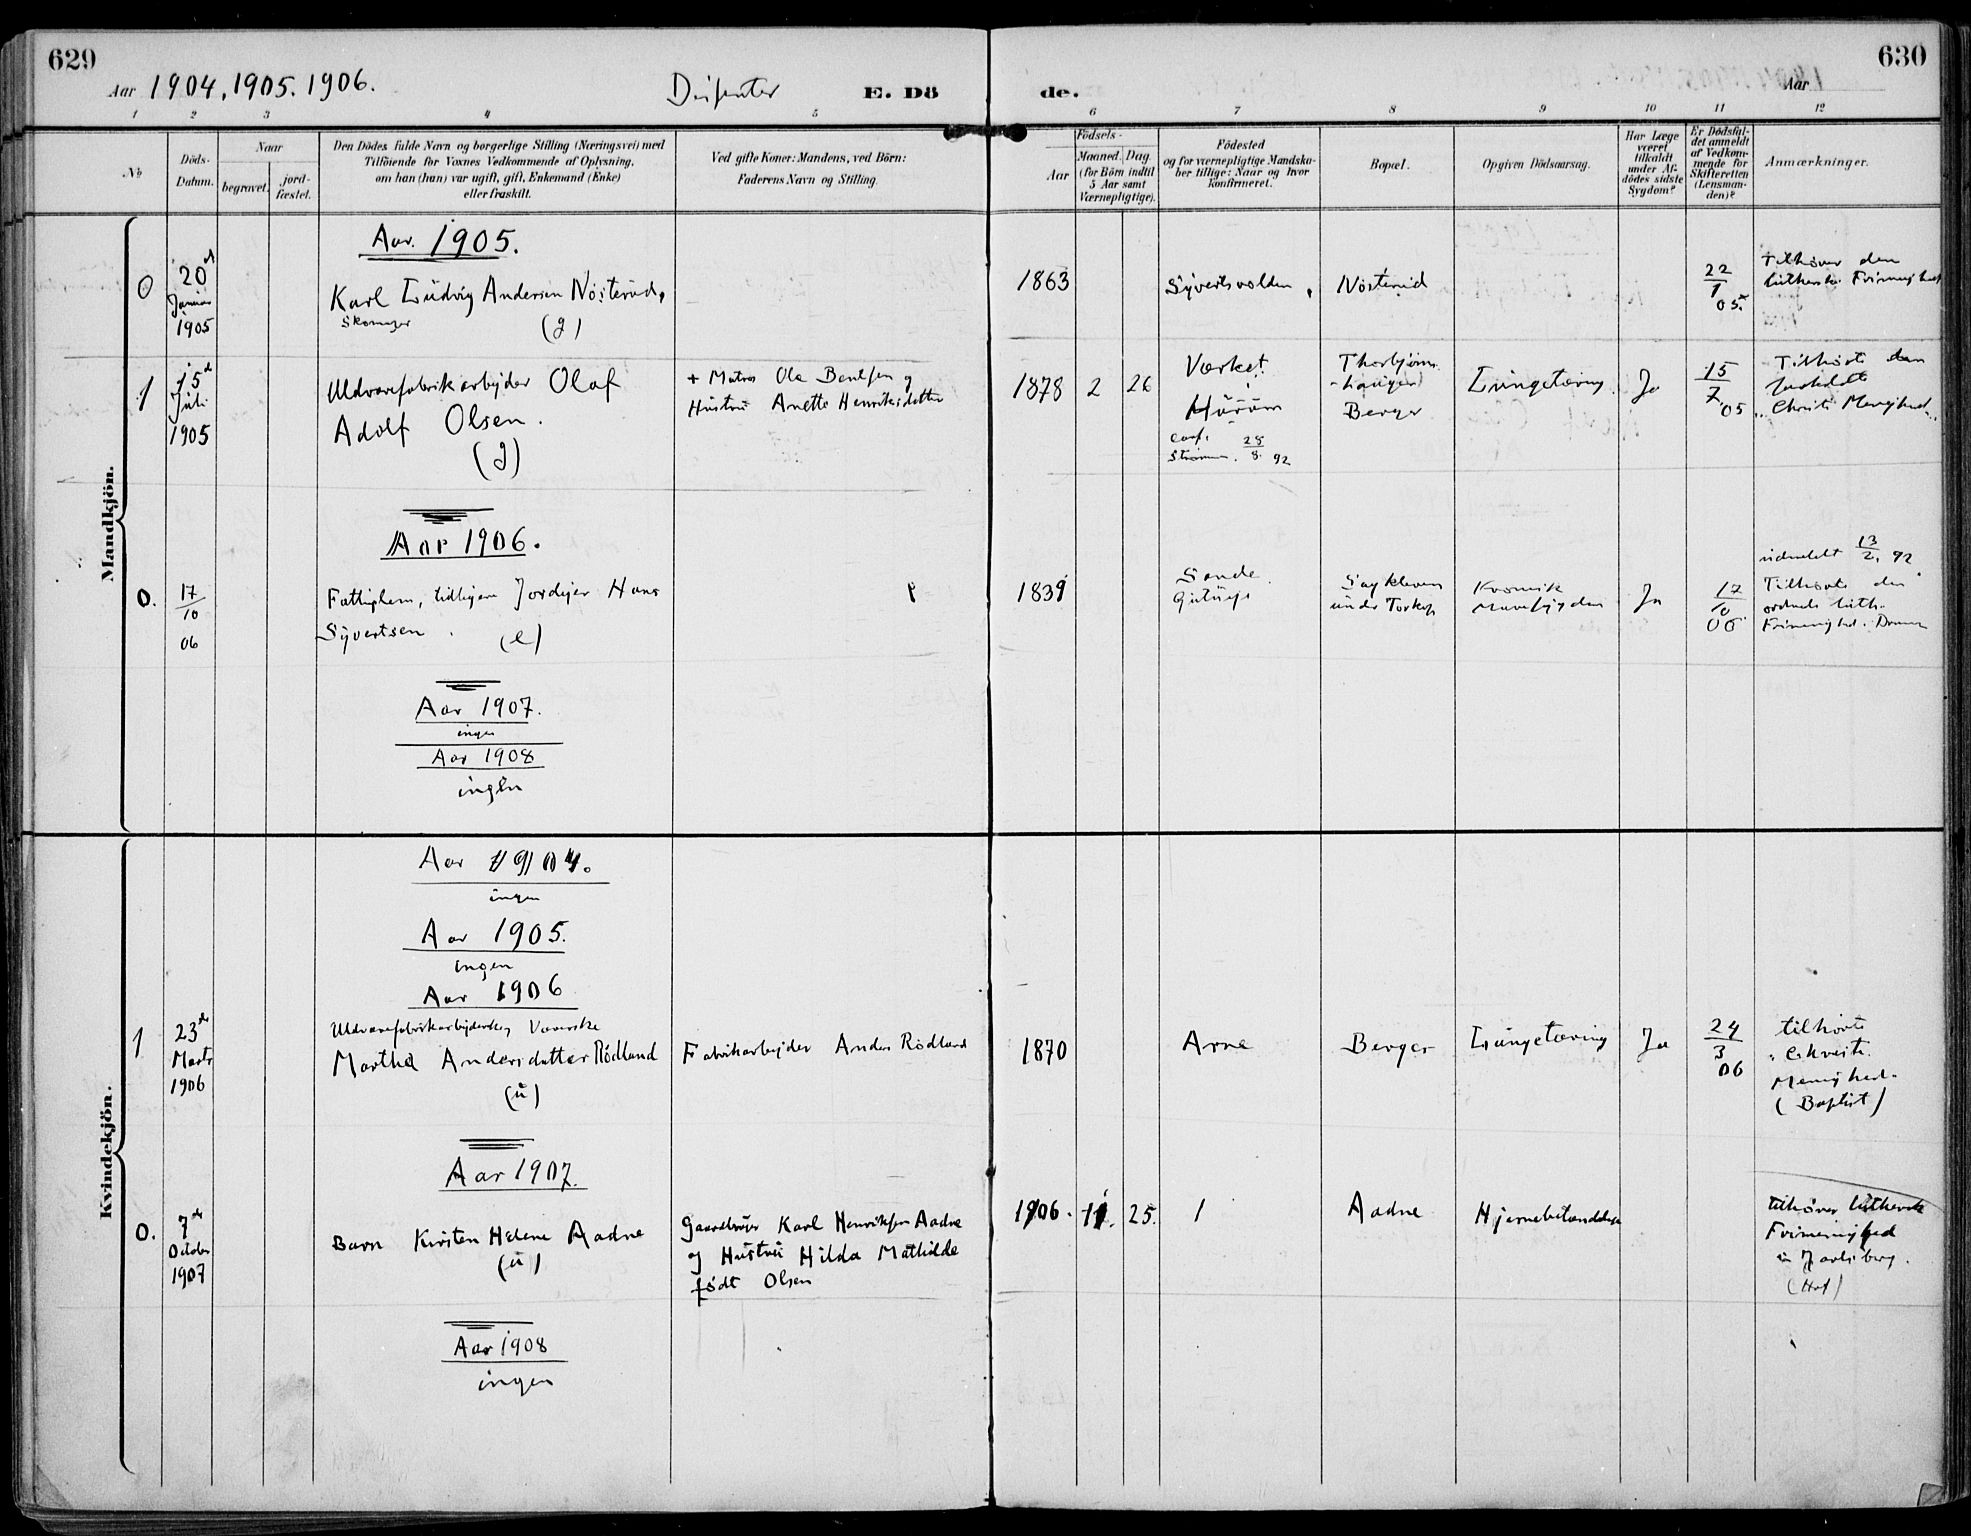 629
630
Aar 1904, 1905. 1906.
E. Dö
de.
Aar
1 2 3 4 5 6 7 8 9 10 11 12
No
Döds-
Datum.
Naar
begravet.
jord-
fæstet.
Den Dödes fulde Navn og borgerlige Stilling (Næringsvei) med
Tilföiende for Voxnes Vedkommende af Oplysning,
om han (hun) var ugift, gift, Enkemand (Enke)
eller fraskilt.
Ved gifte Koner: Mandens, ved Börn:
Faderens Navn og Stilling.
Födsels-
Aar
Maaned.
Dag
(for Börn indtil
5 Aar samt
Værnepligtige).
Födested
og for værnepligtige Mandska-
ber tillige: Naar og hvor
konfirmeret.
Bopæl.
Opgiven Dödsaarsag.
Har Læge
været
tilkaldt
under Af-
dödes sidste
Sygdom?
Er Dödsfal-
det anmeldt
af Vedkom-
mende for
Skifteretten
(Lensman-
den)?
Anmærkninger.
Mandkjön.
Aar 1905.
0
20
Januar
1905
Karl Ludvig Andersen Nösterud,
Skomager
(g)
1863
Syvertsvolden,
Nösterud
22
1
05.
Tilhörer den
lutherske Frimenighed
1
15
Juli
1905
Uldvarefabrikarbejder Olaf
Adolf Olsen.
(g)
+ Matros Ole Bentsen og
Hustru Anette Henriksdatter
1878
2
26
Værket
Hurum
conf.
Strömm. 28
8. 92
Berger
Lungetæring.
Ja
15
7.
05
Tilhörte den
Christi Menighed
Aar 1906.
0.
17
10
06
Fattiglem, tidligere Jordejer Hans
Syvertsen.
(e)
1839
Sande.
under Torkop
Kronisk
Ja
17
10
06
udmeldt 13
2. 92.
Tilhörte den
luth.
Frimenighed.
Aar 1907.
ingen
Aar 1908
ingen
Kvindekjön.
Aar 1904.
ingen
Aar 1905.
ingen
Aar 1906
1
23
Marts
1906
Uldvarefabrikarbejderske, Væverske
Marthea Andersdatter Rödland
(u)
Fabrikarbejder Anders Rödland
1870
Arne
Berger
Lungetæring
Ja
24
3
06
tilhörte
Menighed.
(Baptist)
Aar 1907.
0.
7
October
1907
Barn Kirsten Helene Aadne
(u)
Gaardbruger Karl Henriksen Aadne
og Hustru Hilda Mathilde
födt Olsen
1906.
11.
25.
Aadne
Hjernebetændelse
tilhörer lutherske
Frimenighed
in Jarlsberg.
(Hof)
Aar 1908
ingen